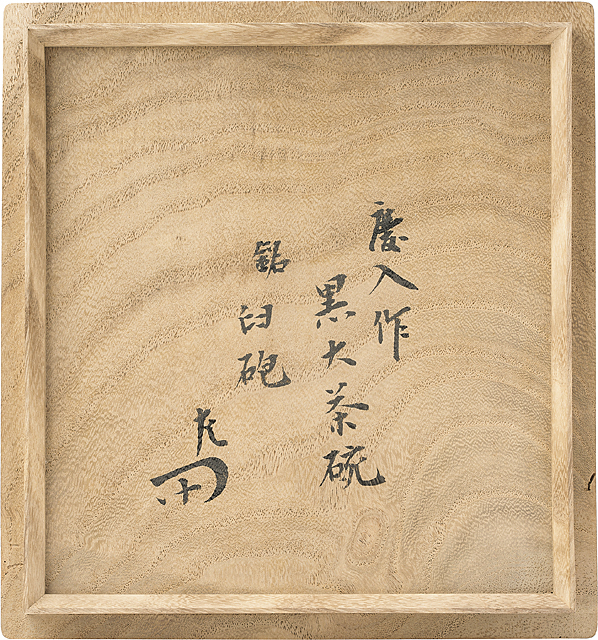 慶入作
黒大茶碗
銘 臼砲
左